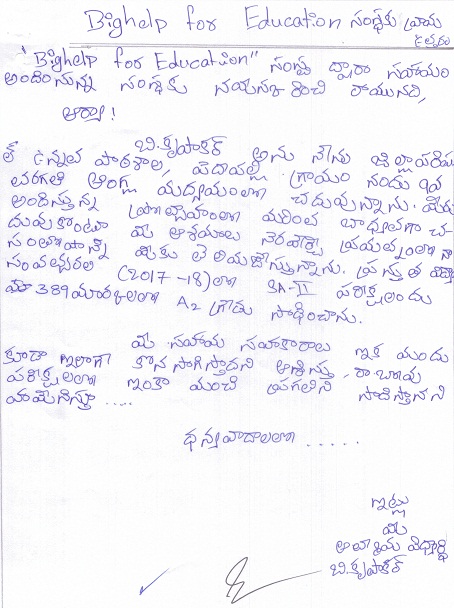 Bighelp for Education సంస్థకు వ్రాయు
ఉత్తరం
"Bighelp for Education" సంస్థ ద్వారా సహాయం
అందిస్తున్న సంస్థకు నమస్కరించి రాయునది,
ఆర్యా!
బి.కృపాకర్ అను నేను జిల్లాపరిష
త్ ఉన్నత పాఠశాల, పెదాయపల్లి గ్రామం నందు 10వ
తరగతి ఆంగ్ల మద్యమంలో చదువుచున్నాను. మీరు
అందిస్తున్న ప్రోత్సాహంలో మరింత బాధ్యతగా చ-
దువుకొంటూ మీ ఆశయాలు నెరవేర్చే ప్రయత్నంలో నా
సంతోషాన్ని మీకు తెలియజేస్తున్నాను. ప్రస్తుత విద్యా
సంవత్సరం (2017-18)లో SA-II పరీక్షలందు
389 మార్కులతో A2 గ్రేడు సాధించాను.
మీ సహాయ సహకారాలు ఇక ముందు
కూడా ఇలాగే కొనసాగిస్తారని ఆశిస్తు, రాబోవు
పరీక్షలలో ఇంకా మంచి ప్రగతిని సాదిస్తానని
.....
ధన్యవాదాలతో .....
ఇట్లు
మీ
విద్యార్థి
బి.కృపాకర్